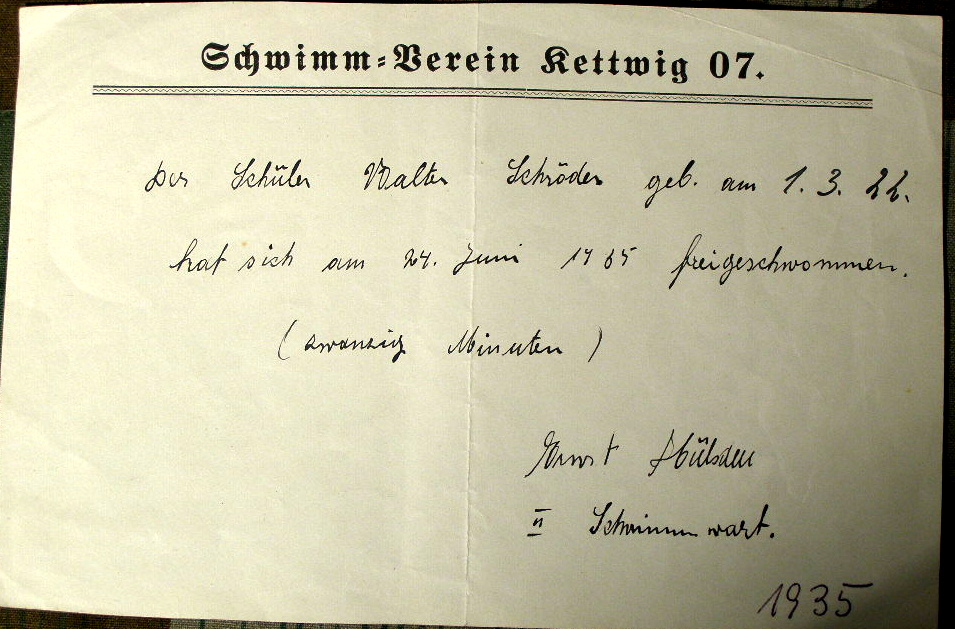 Schwimm=Verein Kettwig 07.
Der Schüler Walter Schröder geb. am 1. 3. 22.
hat sich am 24. Juni 1935 freigeschwommen.
(zwanzig Minuten)
Ernst Hülsden
II Schwimmwart.
1935